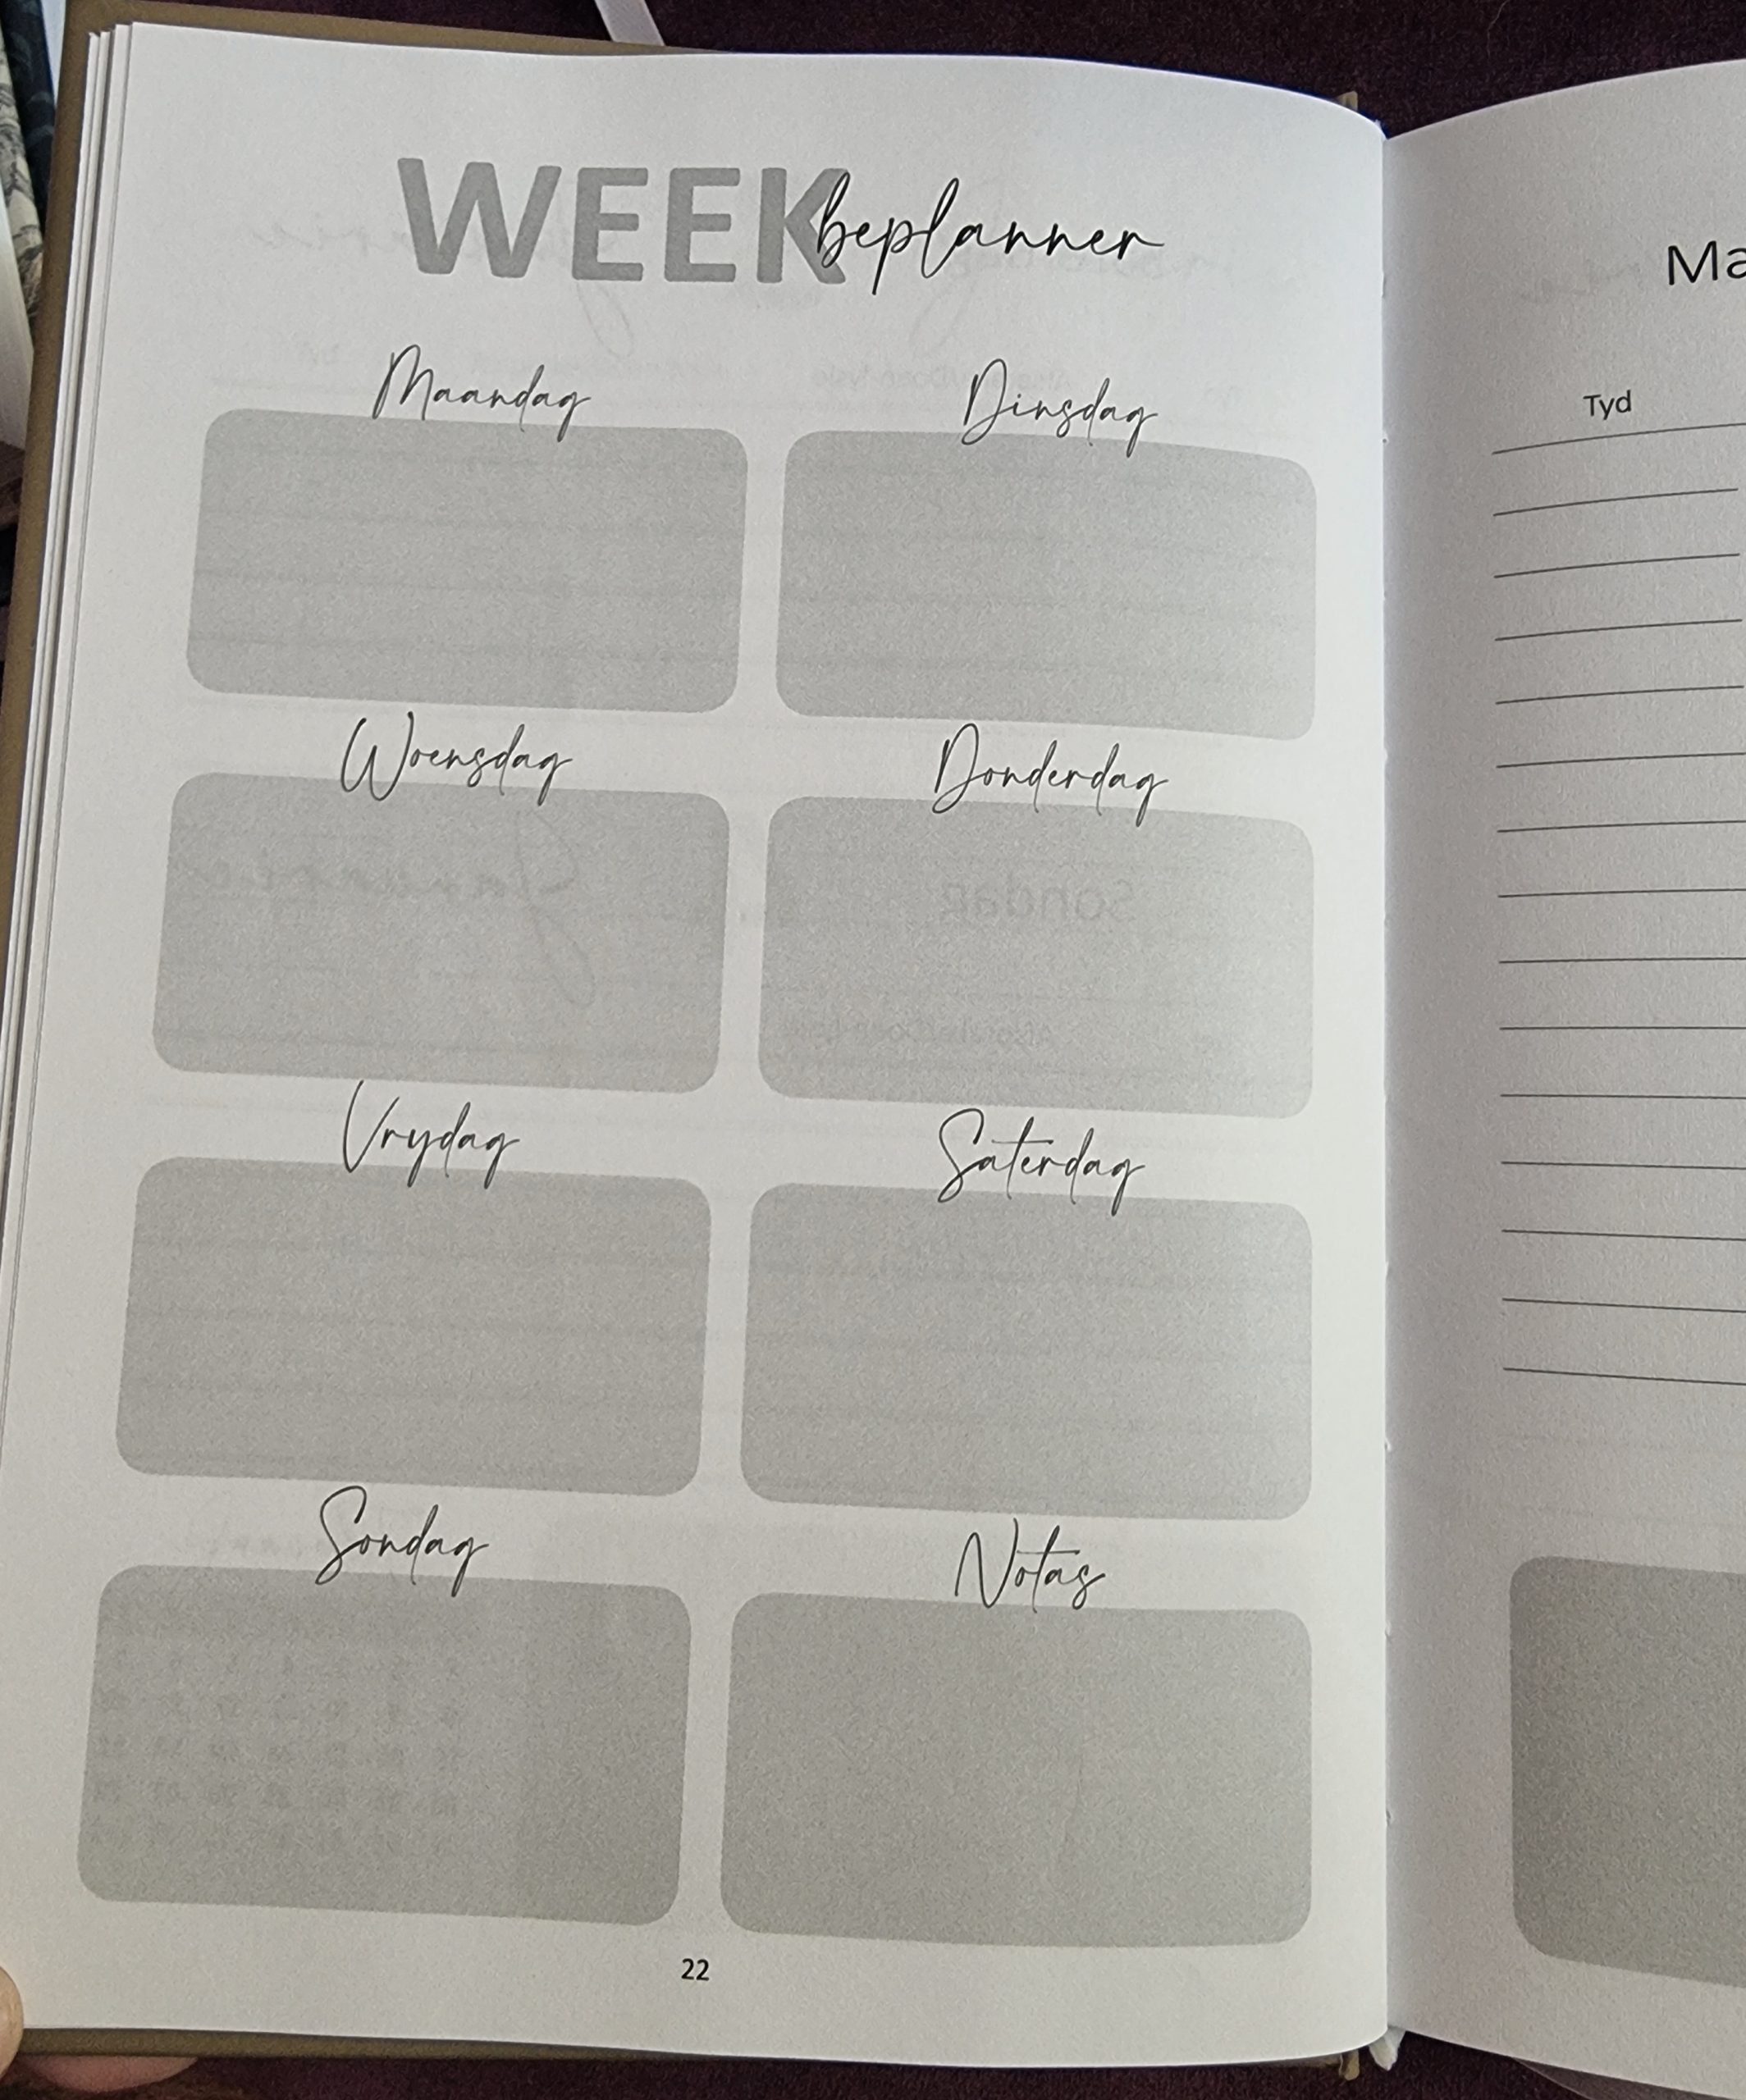 WEEKbeplanner
Maandag
Dinsdag
Woensdag
Donderdag
Vrydag
Saterdag
Sondag
Notas
22
Ma
Tyd